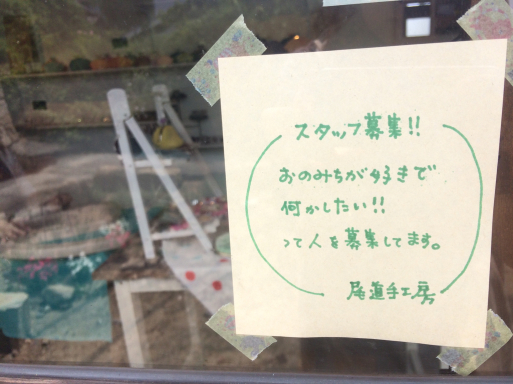 スタッフ募集!!
おのみちが好きで
何かしたい!!
って人を募集してます。
尾道手工房